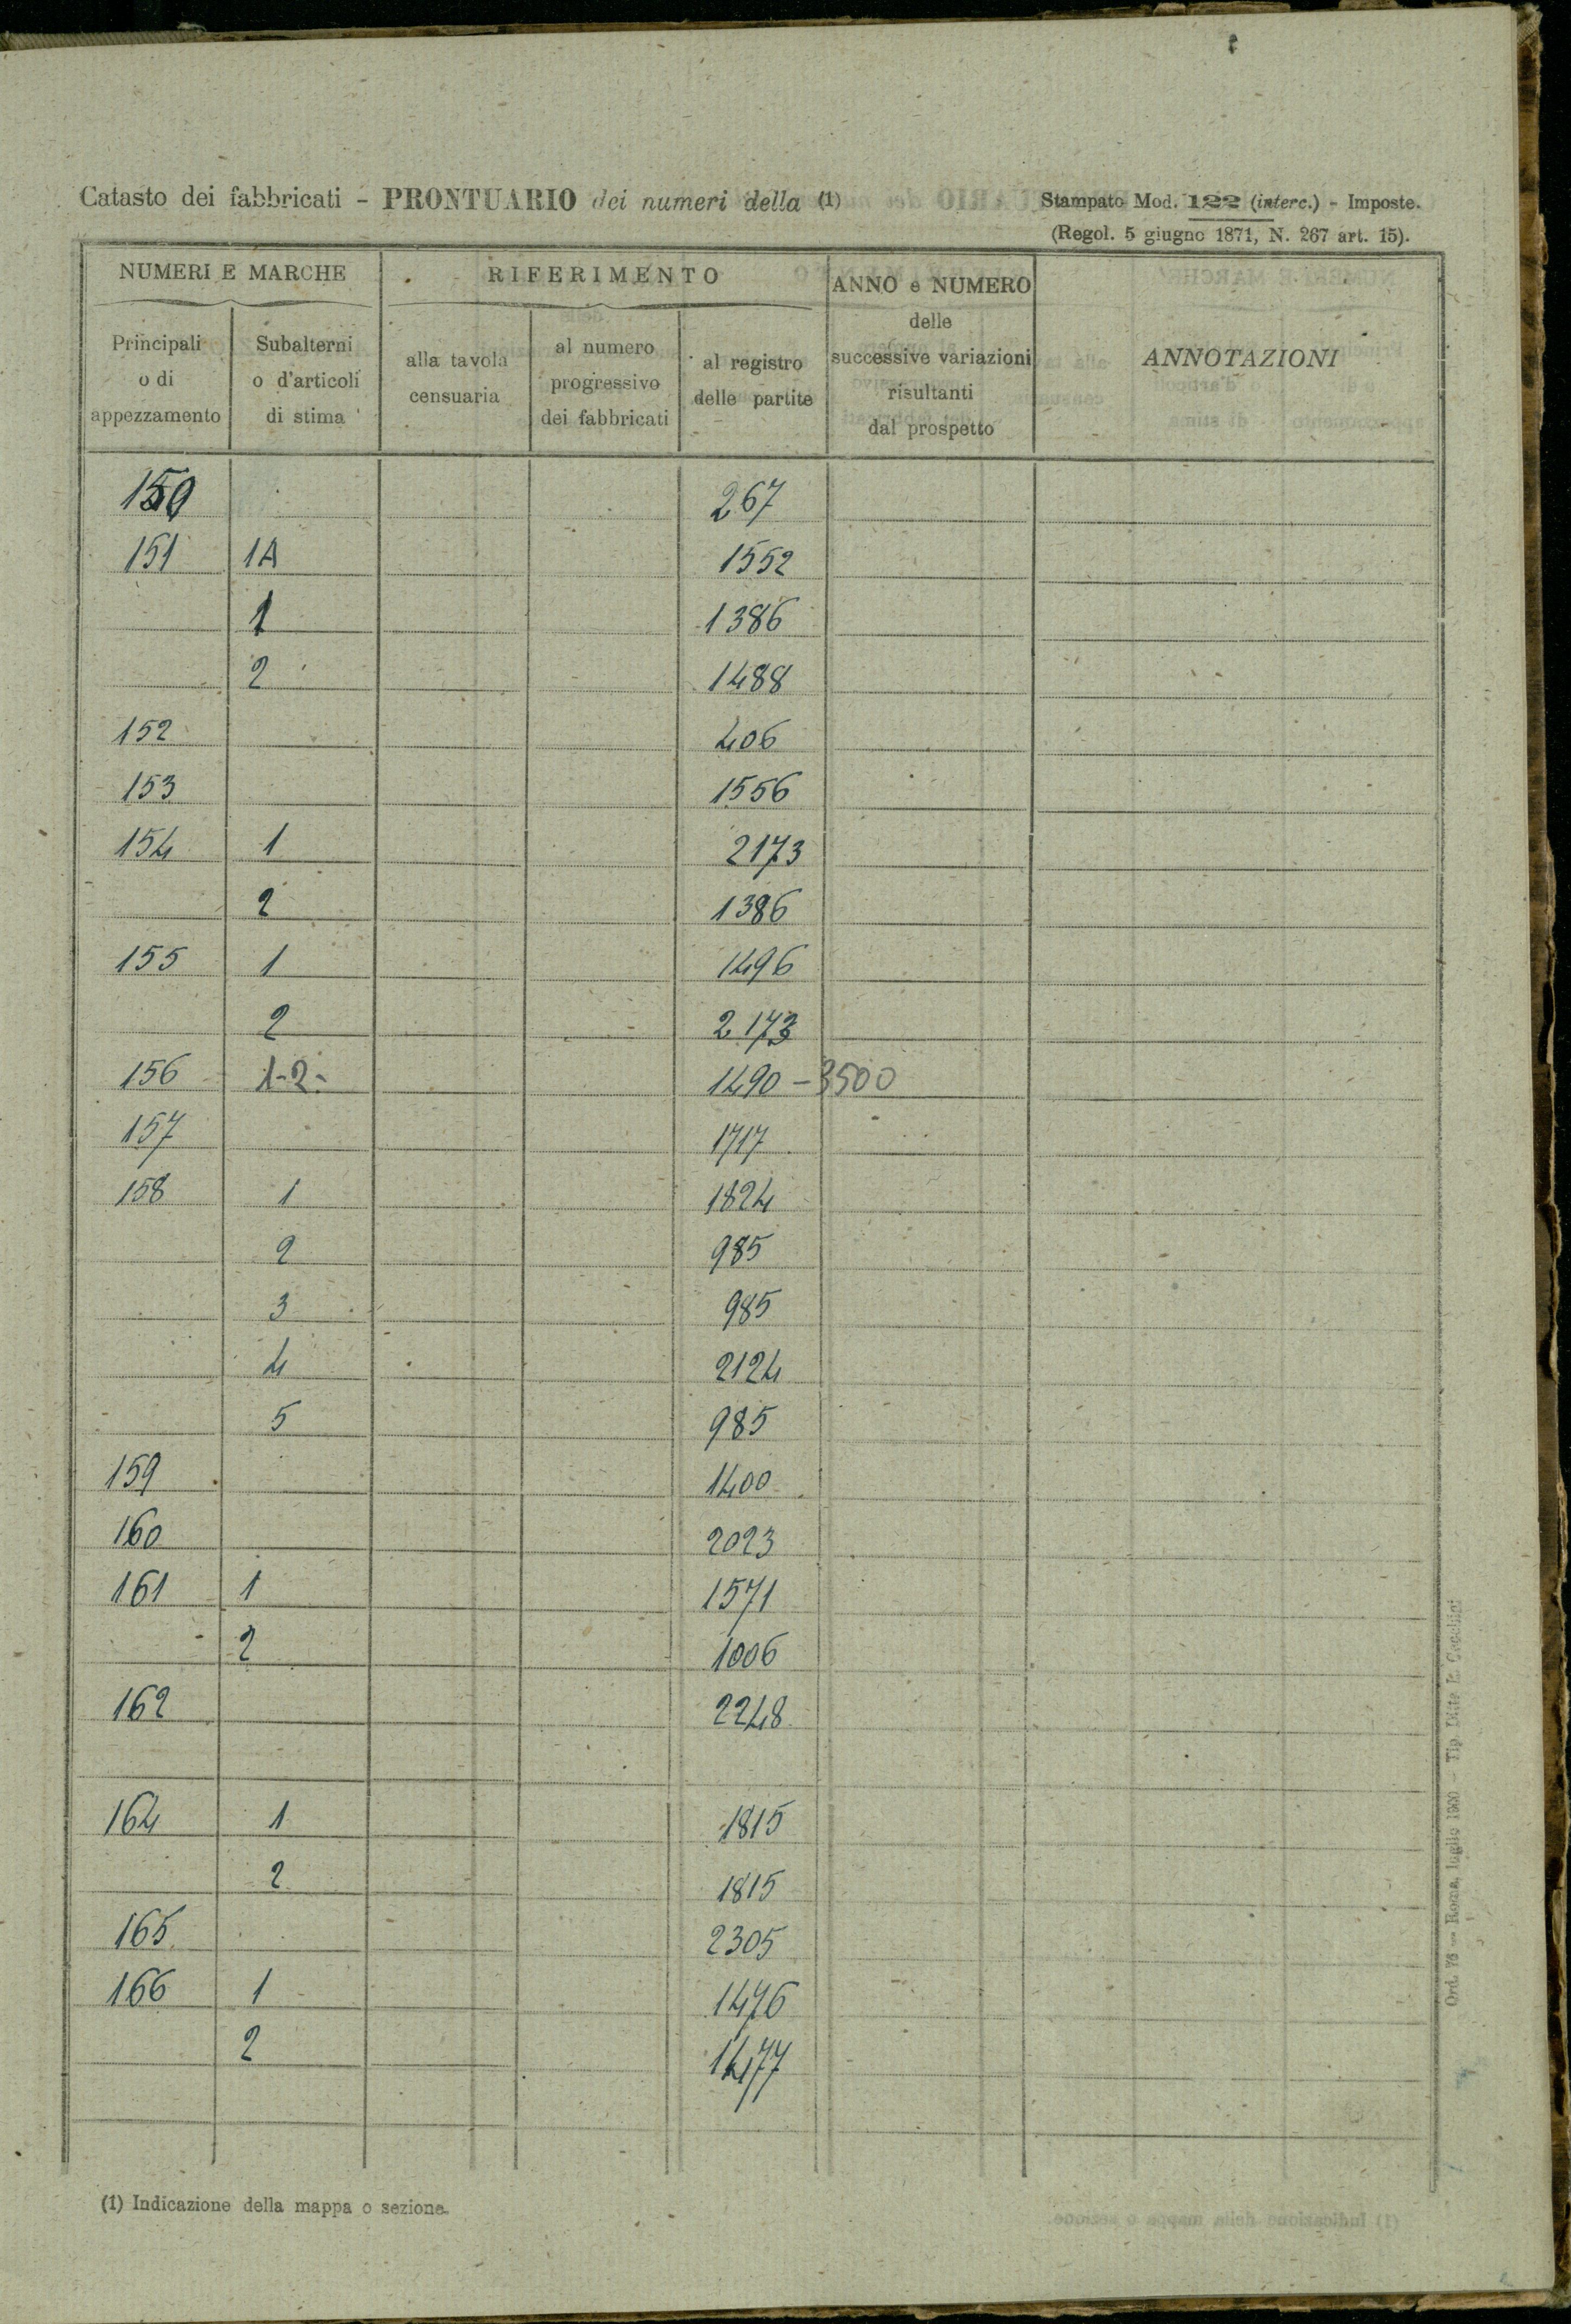 Catasto dei fabbricati - PRONTUARIO dei numeri della (1)
Stampato Mod. 122 (interc.) - Imposte.
(Regol. 5 giugno 1871, N. 267 art. 15).
NUMERI E MARCHE RIFERIMENTO ANNO e NUMERO
delle
successive variazioni
risultanti
dal prospetto
ANNOTAZIONI
Principali
o di
appezzamento
Subalterni
o d'articoli
di stima
alla tavola
censuaria
al numero
progressivo
dei fabbricati
al registro
delle partite
150 267
151 1A 1552
1 1386
2 1488
152 406
153 1556
154 1 2173
2 1386
155 1 1496
2 2173
156 1-2- 1490 - 3500
157 1717
158 1 1824
2 985
3 985
4 2124
5 985
159 1400
160 2023
161 1 1571
2 1006
162 2248
164 1 1815
2 1815
165 2305
166 1 1476
2 1477
(1) Indicazione della mappa o sezione.
Ord. 76 — Roma, luglio 1900 - Tip. Ditta L. Cecchini